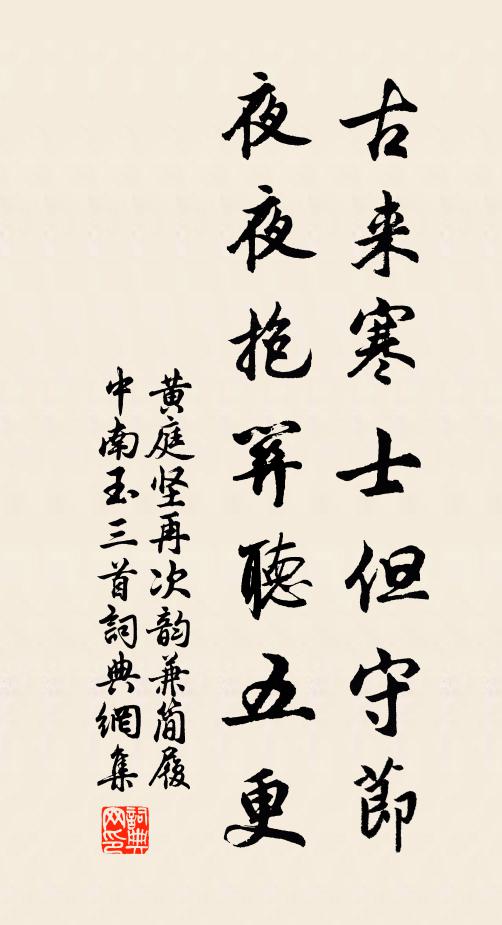 古来寒士但守節
夜夜抱関聴五更
黄庭坚再次韵兼簡履
中南玉三首詞典網集
詞典网印